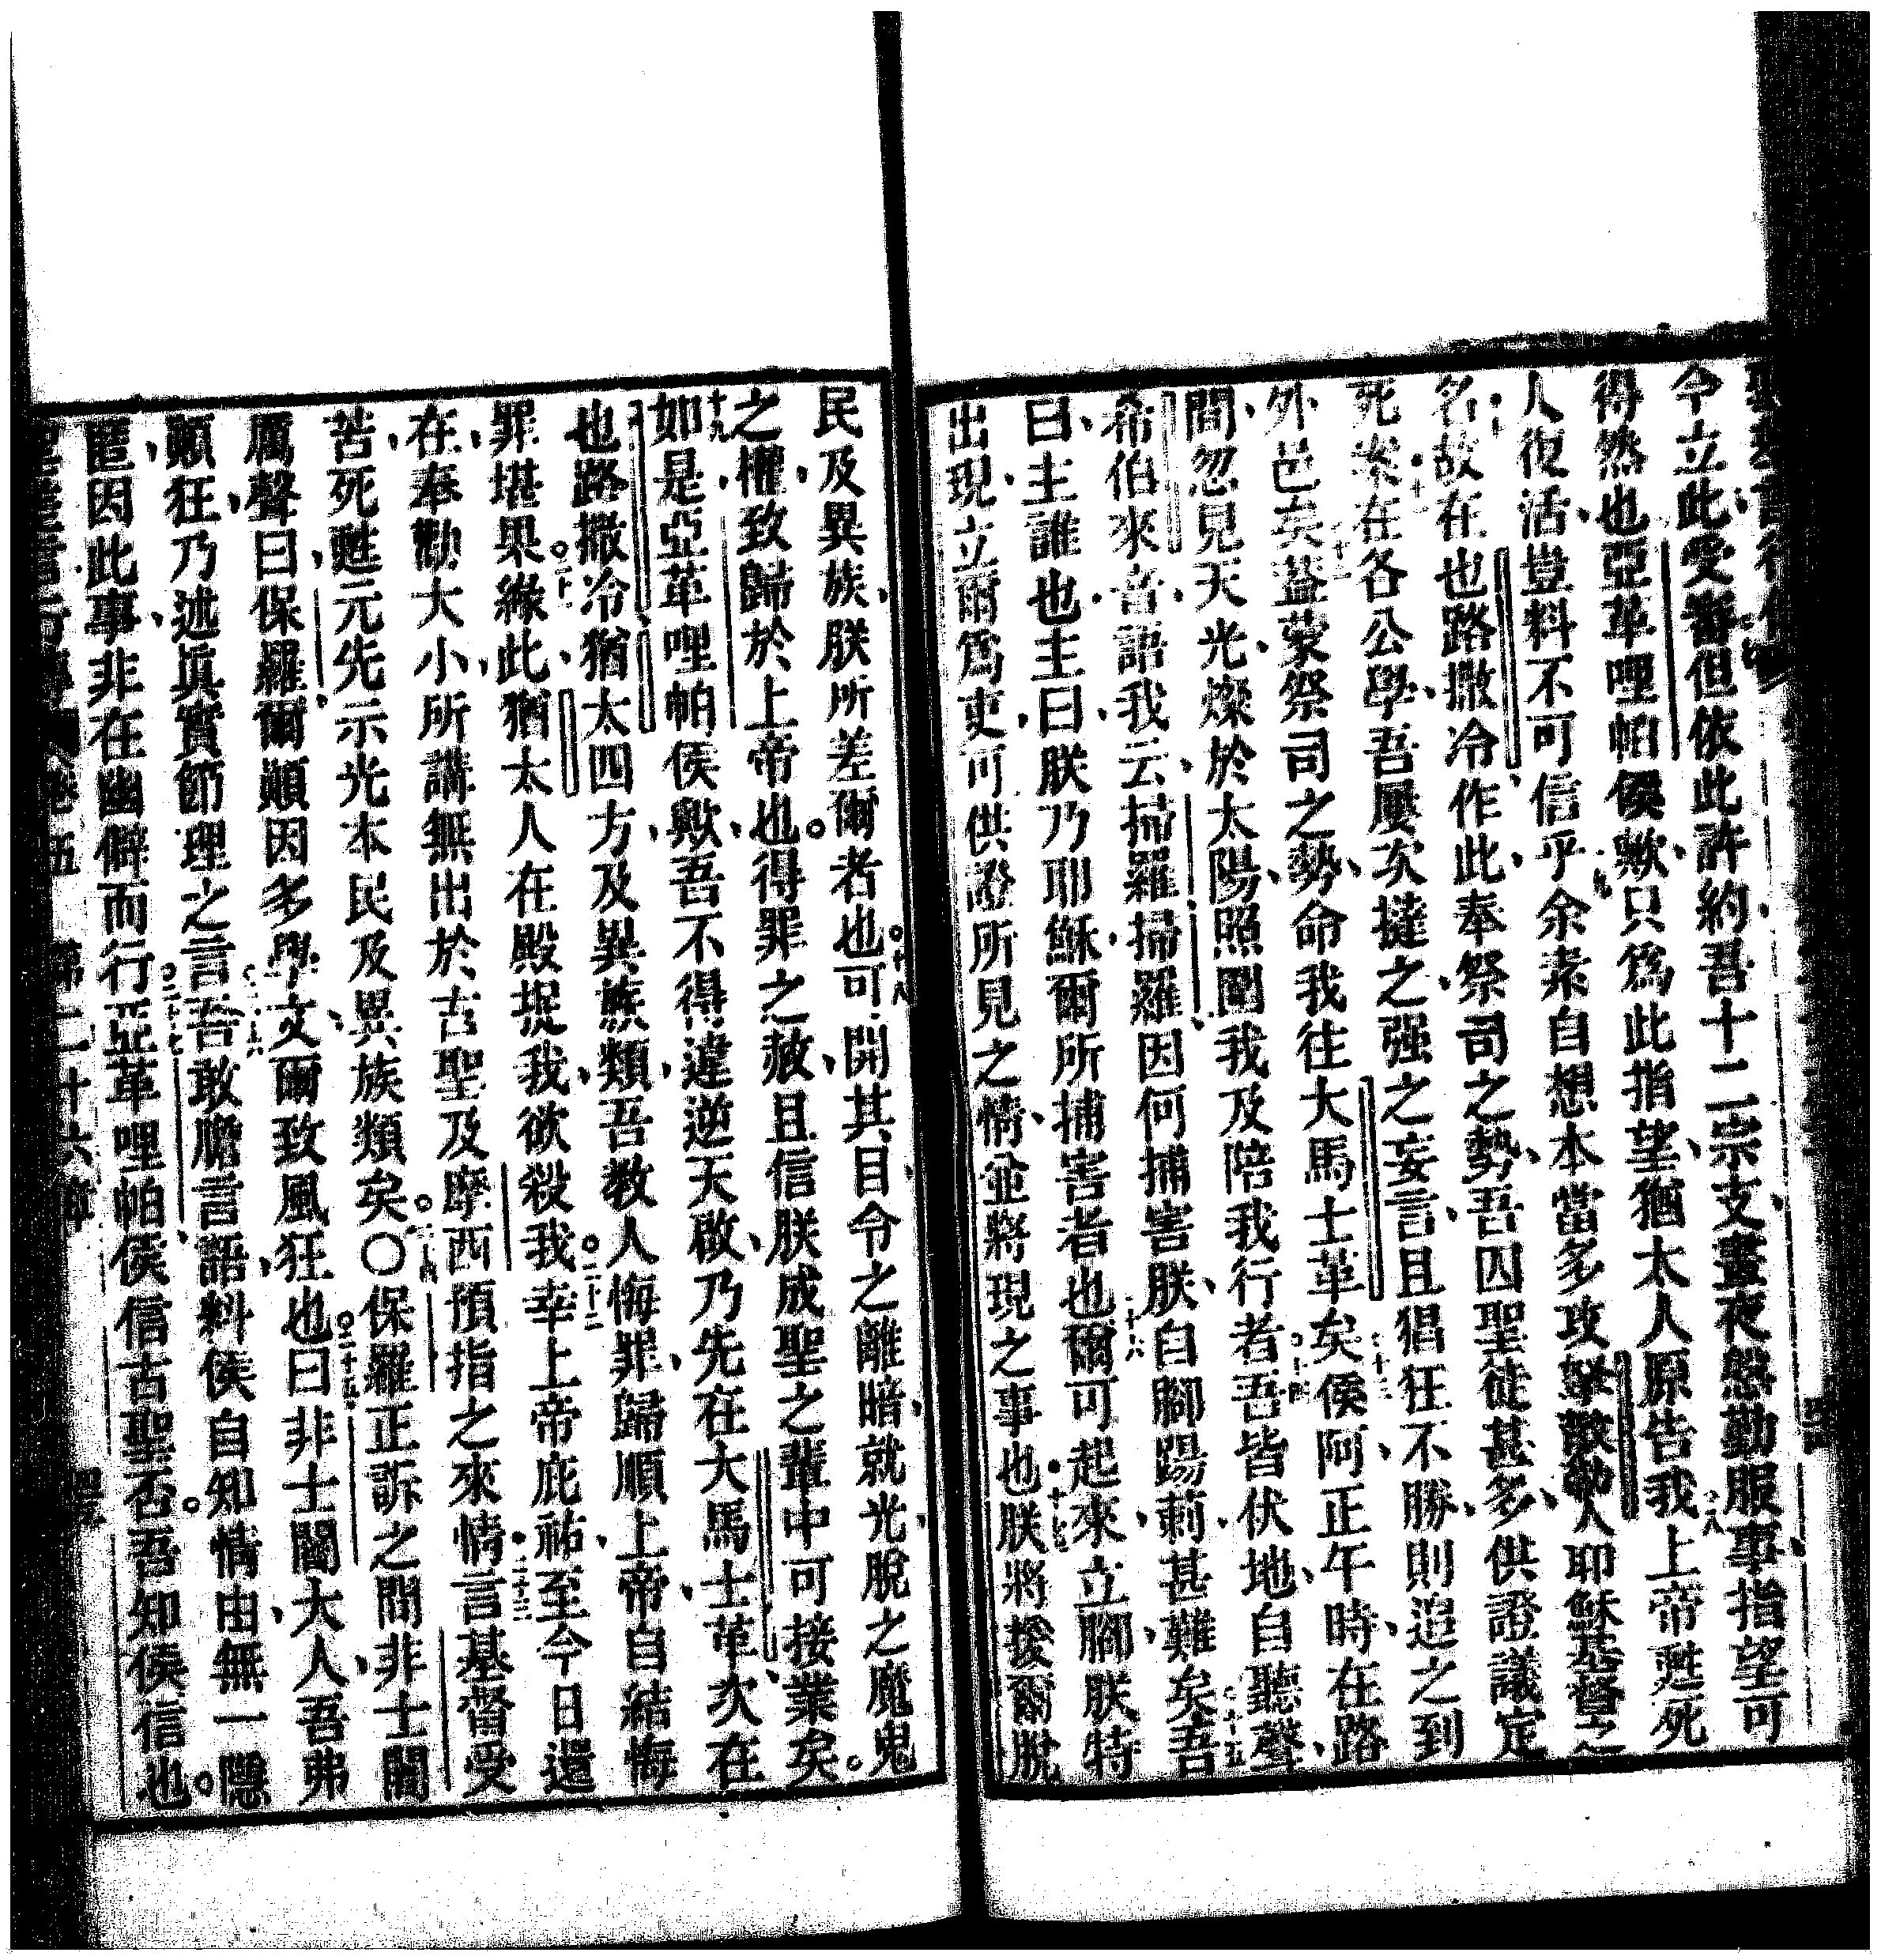 今立此受審但依此許約吾十二宗支晝夜慇勤服事指望可
得然也亞革哩帕侯歟只爲此指望猶太人原告我上帝甦死
人復活豈料不可信乎余素自想本當多攻擊教勸人耶穌基督之
名故在也路撒冷作此奉祭司之勢吾囚聖徒甚多供證議定
死案在各公學吾屢次撻之强之妄言且猖狂不勝則追之到
外邑矣葢蒙祭司之勢命我往大馬士革矣侯阿正午時在路
間忽見天光燦於太陽照圍我及陪我行者吾皆伏地自聽聲
希伯來音語我云掃羅掃羅因何捕害朕自腳踢莿甚難矣吾
曰主誰也主曰朕乃耶穌爾所捕害者也爾可起來立腳朕特
出現立爾爲吏可供證所見之情並將現之事也朕將援爾脫
民及異族朕所差爾者也可開其目令之離暗就光脫之魔鬼
之權致歸於上帝也得罪之赦且信朕成聖之輩中可接業矣
如是亞革哩帕侯歟吾不得違逆天啟乃先在大馬士革次在
也路撒冷猶太四方及異族類吾教人悔罪歸順上帝自結悔
罪堪果緣此猶太人在殿捉我欲殺我幸上帝庇祐至今日還
在奉勸大小所講無出於古聖及摩西預指之來情言基督受
苦死甦元先示光本民及異族類矣〇保羅正訴之間非士闔
厲聲曰保羅爾顛因多學文爾致風狂也曰非士闔大人吾弗
顛狂乃述眞實節理之言吾敢膽言語料侯自知情由無一隱
匿因此事非在幽僻而行亞革哩帕侯信古聖否吾知侯信也
卷五 第二十六章